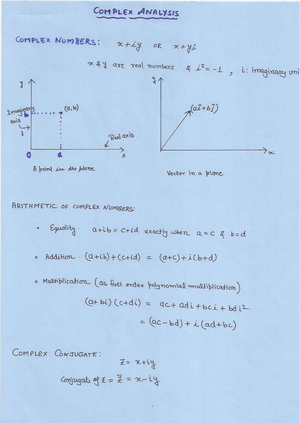 COMPLEX ANALYSIS
COMPLEX NUMBERS: x+iy OR x+yi
x & y are real numbers & i²=-1, i: Imaginary uni
y
Imaginary axis
b
(a,b)
i
Real axis
0 a x
A point in the plane
y
(aî+bĵ)
x
Vector in a plane
ARITHMETIC OF COMPLEX NUMBERS:
• Equality a+ib = c+id exactly when a=c & b=d
• Addition (a+ib)+(c+id) = (a+c)+i(b+d)
• Multiplication (as first order polynomial multiplication)
(a+bi)(c+di) = ac+adi+bci+bdi²
= (ac-bd)+i(ad+bc)
COMPLEX CONJUGATE:
Z = x+iy
Conjugate of Z = Z̅ = x-iy